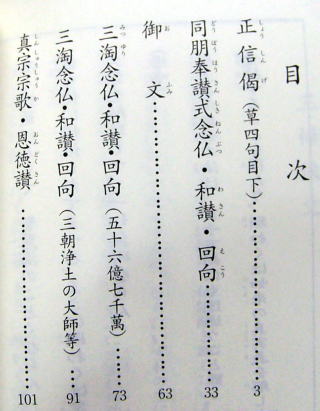 目次
正信偈（草四句目下）……………3
同朋奉讃式念仏・和讃・回向……………33
御文……………63
三淘念仏・和讃・回向（五十六億七千萬）……73
三淘念仏・和讃・回向（三朝浄土の大師等）……91
真宗宗歌・恩徳讃……………101